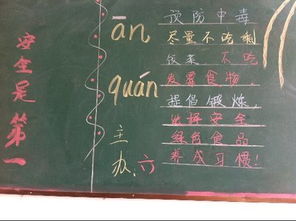 安全是第一
ān
quán
主
办:六
预防中毒
尽量不吃剩
饭菜 不吃
发霉食物,
提倡锻炼,
选择安全
绿色食品
养成习惯!